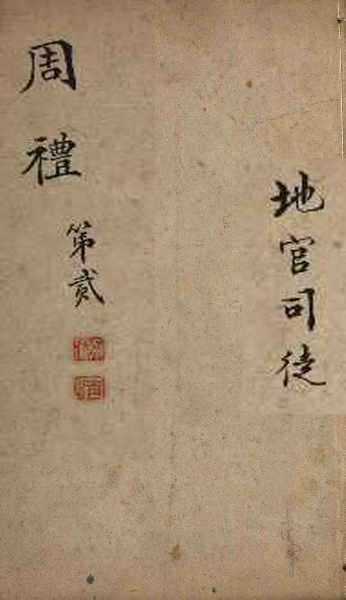 地官司徒
周禮
第貳